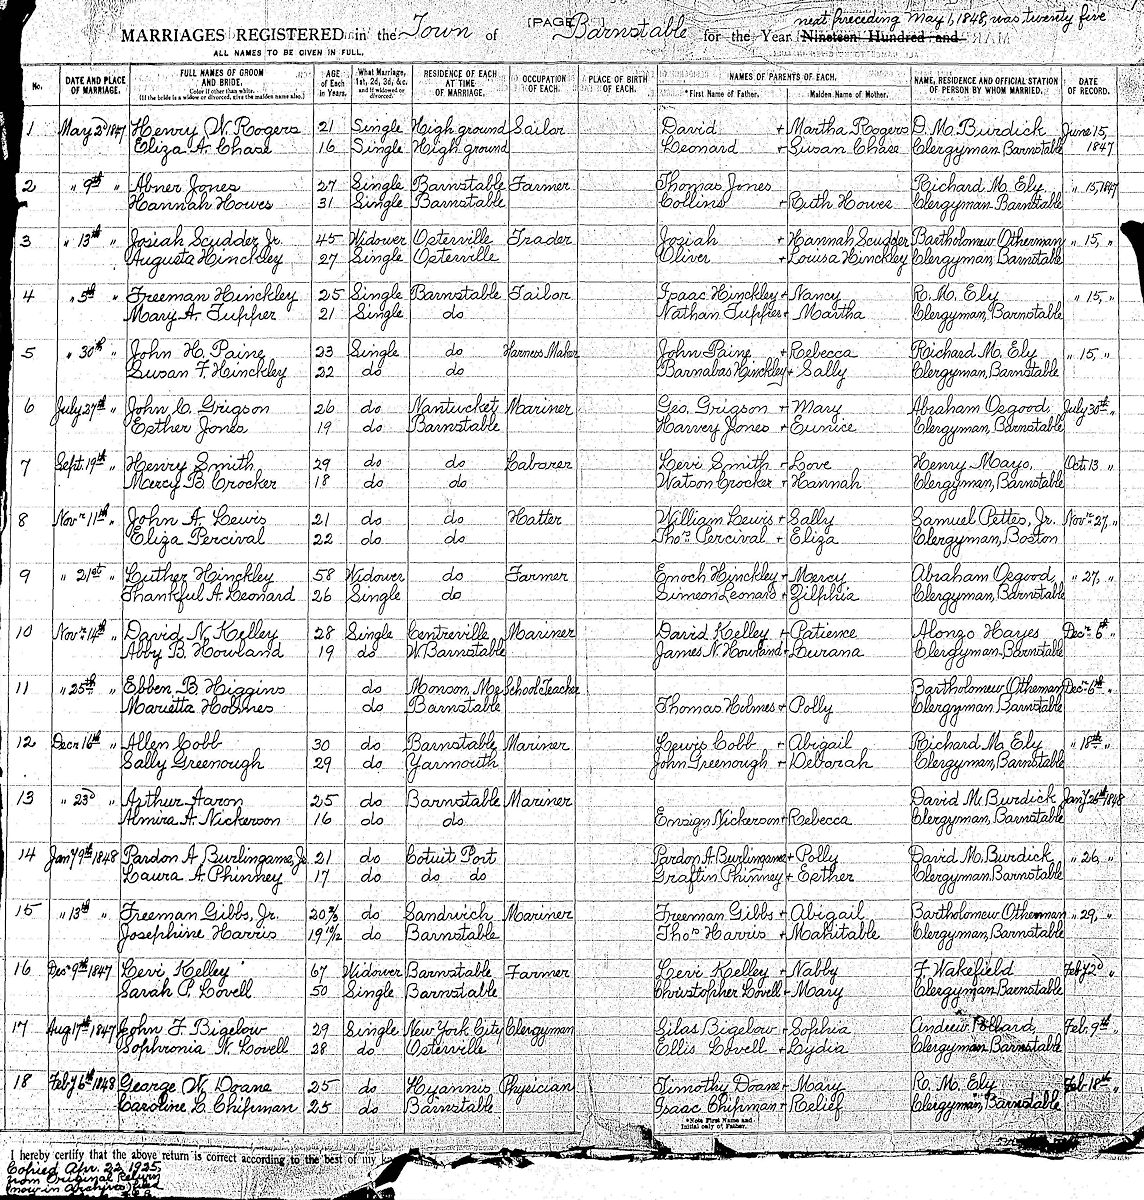 [PAGE ]
next preceding May 1, 1848, was twenty five
MARRIAGES REGISTERED in the Town of Barnstable for the Year Nineteen Hundred and
ALL NAMES TO BE GIVEN IN FULL.
No. DATE AND PLACE OF MARRIAGE. FULL NAMES OF GROOM AND BRIDE. Color if other than white. (If the bride is a widow or divorced, give the maiden name also.) AGE of Each in Years. What Marriage, 1st, 2d, 3d, &c. and if widowed or divorced. RESIDENCE OF EACH AT TIME OF MARRIAGE. OCCUPATION OF EACH. PLACE OF BIRTH OF EACH. NAMES OF PARENTS OF EACH. *First Name of Father. Maiden Name of Mother. NAME, RESIDENCE AND OFFICIAL STATION OF PERSON BY WHOM MARRIED. DATE OF RECORD.
1 May 2d 1847 Henry W. Rogers 21 Single High ground Sailor David + Martha Rogers D. M. Burdick June 15,
Eliza A. Chase 16 Single High ground Leonard + Susan Chase Clergyman Barnstable 1847
2 " 9th " Abner Jones 27 Single Barnstable Farmer Thomas Jones Richard M. Ely " 15, 1847
Hannah Howes 31 Single Barnstable Collins + Ruth Howes Clergyman Barnstable
3 " 13th " Josiah Scudder Jr. 45 Widower Osterville Trader Josiah + Hannah Scudder Bartholomew Otheman " 15, "
Augusta Hinckley 27 Single Osterville Oliver + Louisa Hinckley Clergyman, Barnstable
4 " 5th " Freeman Hinckley 25 Single Barnstable Tailor Isaac Hinckley + Nancy R. M. Ely " 15, "
Mary A. Tupper 21 Single do Nathan Tupper + Martha Clergyman, Barnstable
5 " 30th " John H. Paine 23 Single do Harness Maker John Paine + Rebecca Richard M. Ely " 15, "
Susan F. Hinckley 22 do do Barnabas Hinckley + Sally Clergyman, Barnstable
6 July 27th " John C. Grigson 26 do Nantucket Mariner Geo. Grigson + Mary Abraham Osgood, July 30th "
Esther Jones 19 do Barnstable Harvey Jones + Eunice Clergyman, Barnstable
7 Sept. 19th " Henry Smith 29 do do Labarer Levi Smith + Love Henry Mayo, Oct. 13 "
Mercy B. Crocker 18 do do Watson Crocker + Hannah Clergyman, Barnstable
8 Novr 11th " John A. Lewis 21 do do Hatter William Lewis + Sally Samuel Pettes, Jr. Novr 27, "
Eliza Percival 22 do do Thos. Percival + Eliza Clergyman, Boston
9 " 21st " Luther Hinckley 58 Widower do Farmer Enoch Hinckley + Mercy Abraham Osgood, " 27, "
Thankful A. Leonard 26 Single do Simeon Leonard + Zilphia Clergyman, Barnstable
10 Novr 14th " David N. Kelley 28 Single Centreville Mariner David Kelley + Patience Alonzo Hayes Decr 6th "
Abby B. Howland 19 do W. Barnstable James N. Howland + Lurana Clergyman Barnstable
11 " 25th " Ebben B Higgins do Monson, Me School Teacher Bartholomew Otheman Decr 6th "
Marietta Holmes do Barnstable Thomas Holmes + Polly Clergyman Barnstable
12 Decr 16th " Allen Cobb 30 do Barnstable Mariner Lewis Cobb + Abigail Richard M. Ely " 18th "
Sally Greenough 29 do Yarmouth John Greenough + Deborah Clergyman, Barnstable
13 " 23d " Arthur Aaron 25 do Barnstable Mariner David M. Burdick Jany 25th 1848
Almira A. Nickerson 16 do do Ensign Nickerson + Rebecca Clergyman, Barnstable
14 Jany 9th 1848 Pardon A Burlingame, Jr 21 do Cotuit Port Pardon A Burlingame + Polly David M. Burdick " 26, "
Laura A. Phinney 17 do do do Graftin Phinney + Esther Clergyman, Barnstable
15 " 13th " Freeman Gibbs, Jr. 20 2/3 do Sandwich Mariner Freeman Gibbs + Abigail Bartholomew Otheman " 29, "
Josephine Harris 19 10/12 do Barnstable Thos Harris + Mahitable Clergyman, Barnstable
16 Decr 9th 1847 Levi Kelley 67 Widower Barnstable Farmer Levi Kelley + Nabby F. Wakefield Feby 2d "
Sarah P. Lovell 50 Single Barnstable Christopher Lovell + Mary Clergyman Barnstable
17 Aug 17th 1847 John F. Bigelow 29 Single New York City Clergyman Silas Bigelow + Sophia Andrew Pollard, Feb. 9th "
Sophronia N. Lovell 28 do Osterville Ellis Lovell + Lydia Clergyman Barnstable
18 Feby 6th 1848 George W. Doane 25 do Hyannis Physician Timothy Doane + Mary R. M. Ely Feb 18th "
Caroline L. Chipman 25 do Barnstable Isaac Chipman + Relief Clergyman, Barnstable
*Note First Name and Initial only of Father.
I hereby certify that the above return is correct according to the best of my
Copied Apr. 22, 1925,
from Original Return
now in Archives